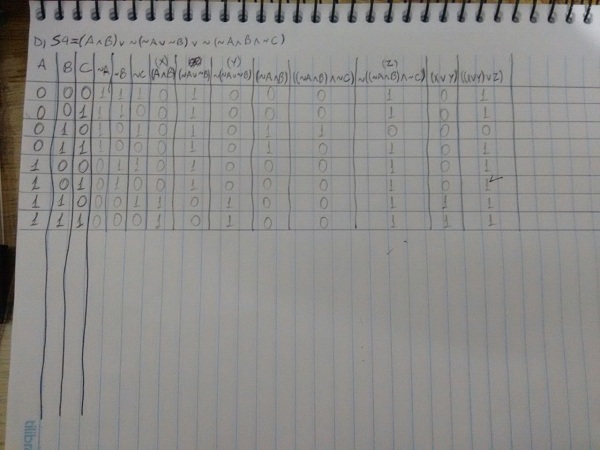 D) S4=(A∧B)∨~(~A∨~B)∨~(~A∧B∧~C)
(X) (Y) (Z)
A B C ~A ~B ~C (A∧B) (~A∨~B) ~(~A∨~B) (~A∧B) ((~A∧B)∧~C) ~((~A∧B)∧~C) (X∨Y) ((X∨Y)∨Z)
0 0 0 1 1 1 0 1 0 0 0 1 0 1
0 0 1 1 1 0 0 1 0 0 0 1 0 1
0 1 0 1 0 1 0 1 0 1 1 0 0 0
0 1 1 1 0 0 0 1 0 1 0 1 0 1
1 0 0 0 1 1 0 1 0 0 0 1 0 1
1 0 1 0 1 0 0 1 0 0 0 1 0 1
1 1 0 0 0 1 1 0 1 0 0 1 1 1
1 1 1 0 0 0 1 0 1 0 0 1 1 1